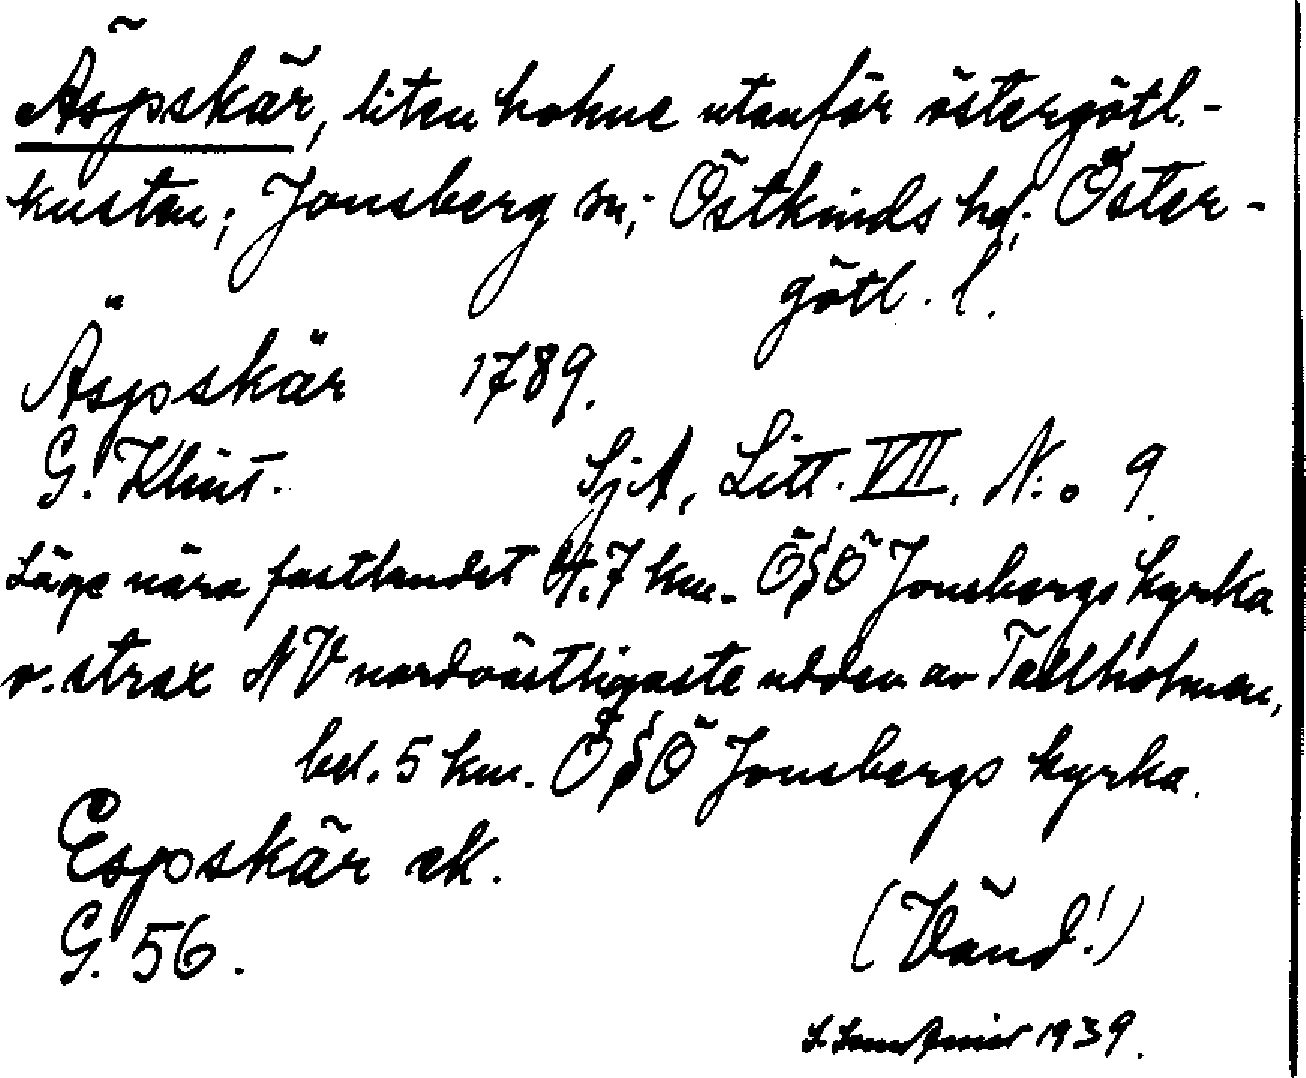 Äspskär, liten holme utanför östergötl.-
kusten; Jonsberg sn; Östkinds hd; Öster-
götl. l.
Äspskär 1789.
G. Klint. SjA, Litt. VII. N:o 9.
Läge nära fastlandet 4.7 km. ÖSÖ Jonsbergs kyrka
o. strax NV nordvästligaste udden av Tallholmen,
bel. 5 km. ÖSÖ Jonsbergs kyrka.
Espskär ek.
G. 56.
(Vänd!)
1939.